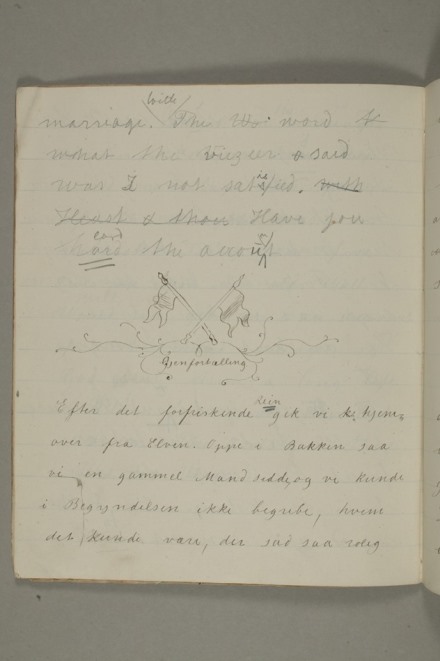 with
marriage. The Wo: word &
what the viezier & said
was I not satisfied. with
Heart & thou Have you
the acount
Gjenfortælling
Efter det forfriskende gik vi hjem-
over fra Elven. Oppe i Bakken saa
vi en gammel Mand sidde, og vi kunde
i Begyndelsen ikke begribe, hvem
det kunde være, der sad saa rolig